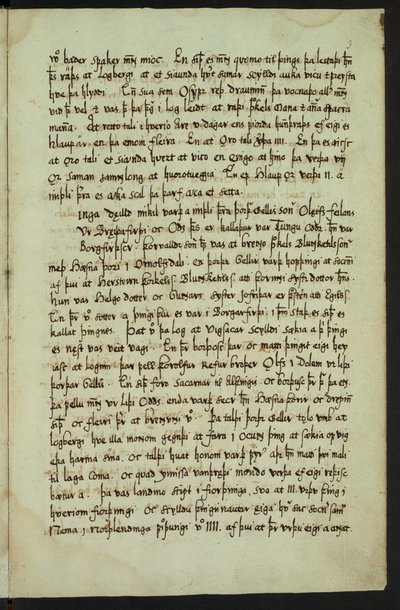 vo baðer spaker menn mioc. En siþ es menn quomo til þings þa leitaþi hann
þess raþs at Logbergi at et siaunda huert sumar scylldi auka vicu oc freista
hve þa hlyddi. Enn sua sem Osyfr reþ draumenn þa vocnoþo aller menn
viþ þat vel oc vas þat þa þegar i log leidt at raþi þorkels Mana oc annara spacra
manna. At retto tali i hverio Are v dagar ens fiorða hundraþs ef eigi es
hlaupár. en þa enom fleira. En at Oro tali verþa IIII. En þa es aucsc
at Oro tali et siaunda hvert at vico en engo at hino þa verþa vij
Or saman iamnlong at huorotueggia. En ef Hlaup Or verþa II. a
miþli þeira es auka scal þa þarf auca et setta.
Þinga deild mikil varþ a miþli þeira þorþar Gellis sonar Oleifs feilans
Ur Breiþafirþi oc Odds þess es kallaþur vas Tungu Oddr. hann var
Borgfirþscur þorvalldr son hans vas at breno þorkels Blundketils sonar
meþ Hæsna þori i Ornolfsdali. en þorþr Geller varþ hofþingi at socinni
af þui at Hersteinn þorkels. Blundketils. atti þorunni syster dotter hans.
hun var Helgo dotter oc Gunars, syster Jofriþar es þorsteinn atti Egilss.
Enn þeir vo sotter a þingi þui es var i Borgarfirþi, i þeim staþ es siþan es
kallat þingnes. Þat vo þa log at Vigsacar scylldi sækia a þui þingi
es nest vas veit vagi. Enn þeir borþosc þar oc matti þingit eigi hey
iasc at logum. þar fell þorolfur Refur broþer Olfs i Dolom ur liþi
þorþar Gellis. En siþan foro sacarnar til Allþingis. oc borþusc þeir þar þa enn.
þa fellu menn ur liþi Odds, enda varþ secr hann Hæsna þorir oc drepinn
siþan oc fleiri þeir at brenunni. Þa talþi þorþr Gellir tolo umb at
logbergi hve illa monom gegnþi at fara i Ocunn þing at sækia of vig
eþa harma sina. Oc talþi huat honom varþ fyrer aþr hann matti þui mali
til laga coma. Oc quad ymissa vanþræþi mondo verþa ef eigi reþisc
bætur a. Þa vas landino skipt i fiorþunga, svo at III. urþo þing i
hveriom fiorþungi oc scylldu þingunautar eiga huar sac socner saman
Nema i Norþlendinga fiorþungi vo IIII. af þui at þeir urþu eigi a annat.